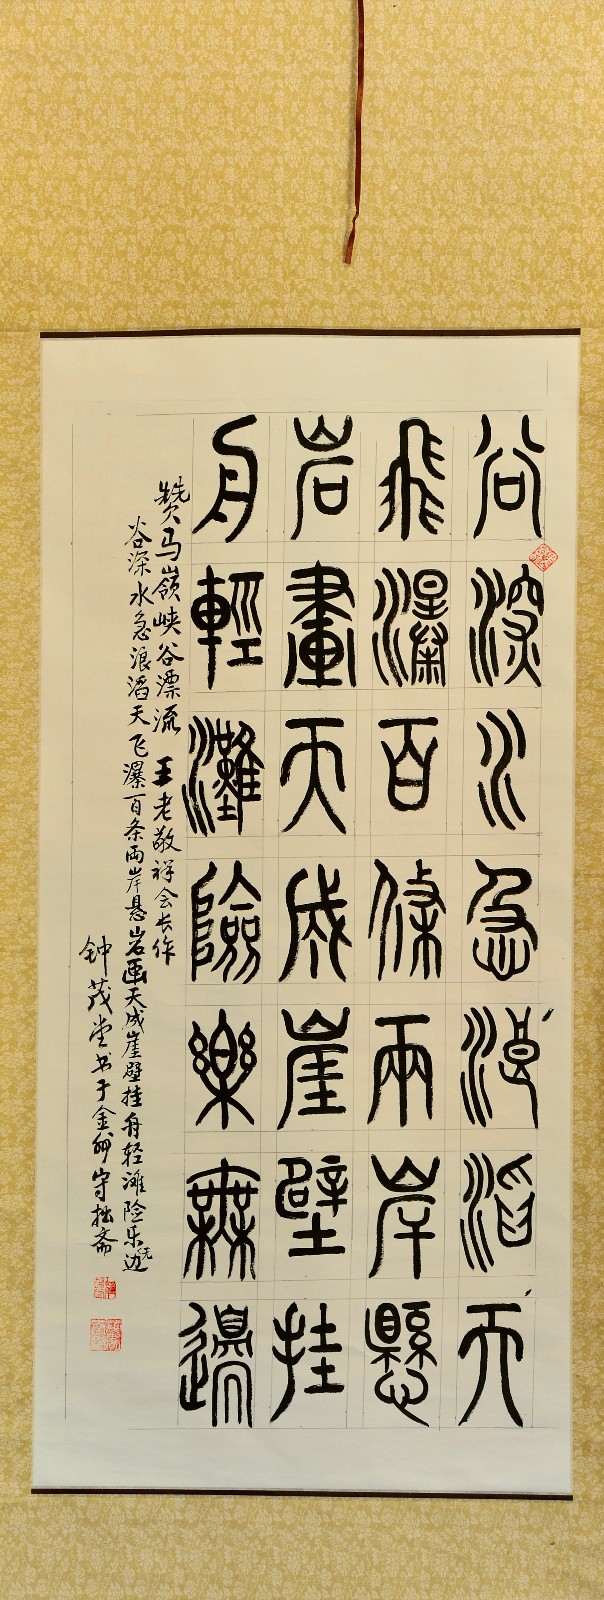 谷深水急浪滔天
飛瀑百條兩岸懸
岩畫天成崖壁挂
舟輕灘險樂無邊
赞马嶺峡谷漂流 王老敬祥会长作
谷深水急浪滔天飞瀑百条两岸悬岩画天成崖壁挂舟轻滩险乐无边
钟茂堂书于金州守拙斋